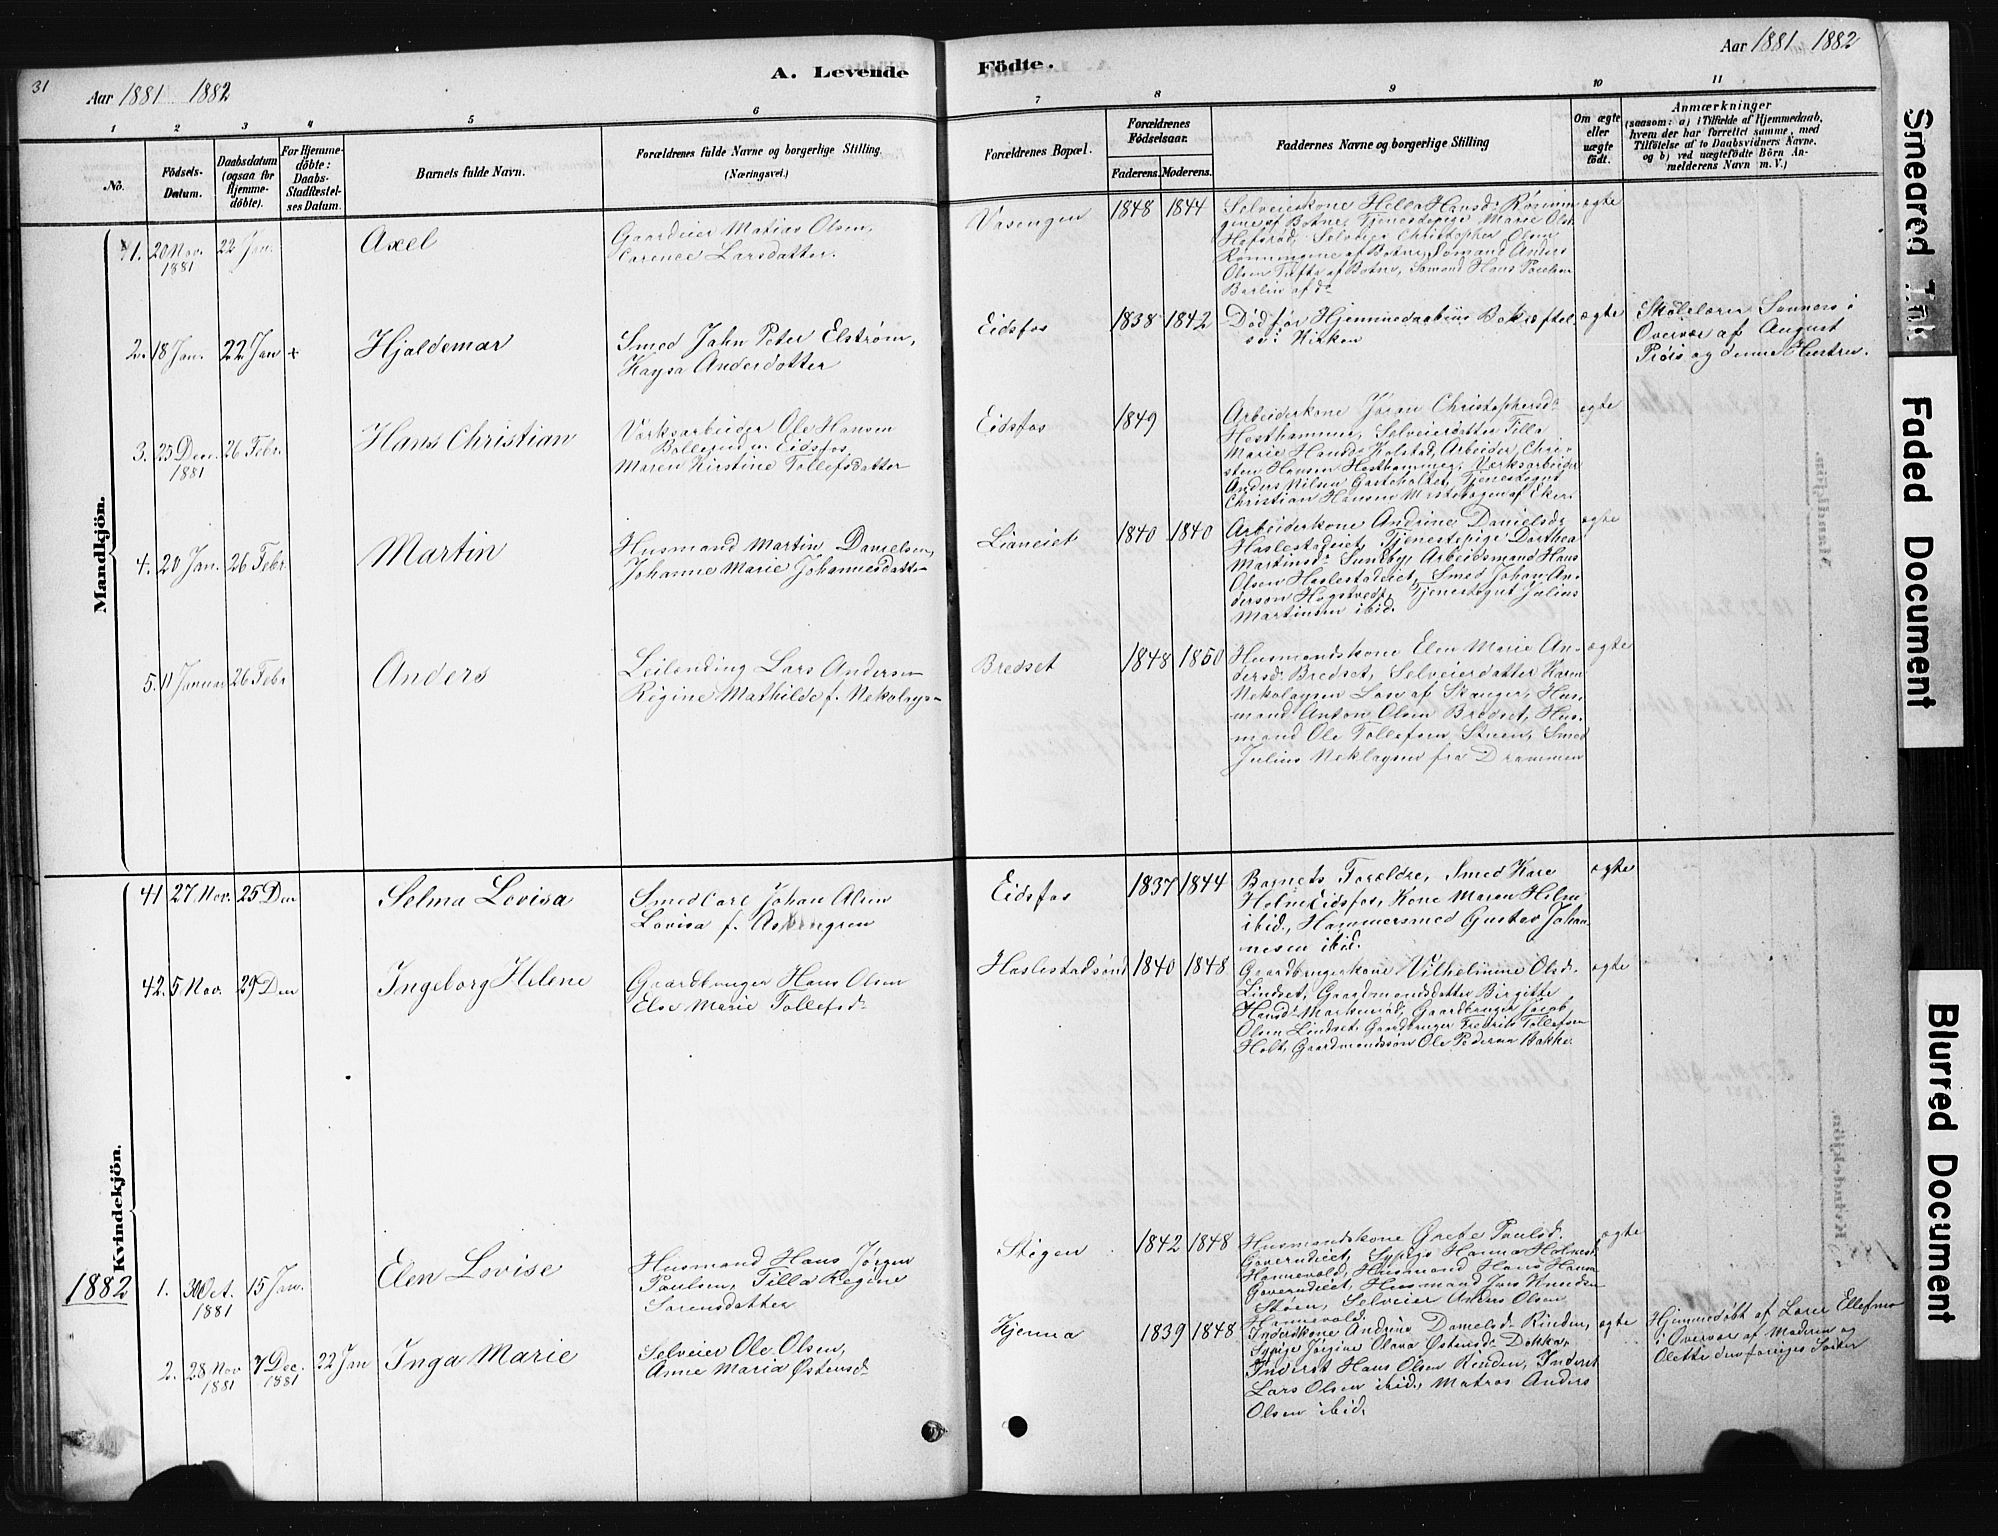 31
Aar 1881 1882
A. Levende
Födte.
Aar 1881 1882
1 2 3 4 5 6 7 8 9 10 11
No.
Födsels-
Datum.
Daabsdatum
(ogsaa for
Hjemme-
döbte).
For Hjemme-
döbte:
Daabs-
Stadfæstel-
ses Datum.
Barnets fulde Navn.
Forældrenes fulde Navne og borgerlige Stilling
(Næringsvei.)
Forældrenes Bopæl.
Forældrenes
Födselsaar.
Faderens. Moderens.
Faddernes Navne og borgerlige Stilling
Om ægte
eller
uægte
födt.
Anmærkninger
(saasom: a) i Tilfælde af Hjemmedaab,
hvem der har forrettet samme, med
Tilföielse af to Daabsvidners Navne,
og b) ved uægtefödte Börn An-
melderens Navn m. V.)
Mandkjön.
1. 20 Nov. 22 Jan.
1881
Axel
Mathies Olsen,
Larsdatter.
Vasengen
1848 1844
Selveierkone Helle Hansd.
af Botne, Tjenestepige Marie Ols.
Hofsrød, Selveier Christopher Olsen
af Botne, Sømand Anders
Olsen Tufte af Botne, Sømand Hans Paulsen
af do
ægte
2. 18 Jan. 22 Jan +
Hjaldemar
Smed Jahn Peter Elstrøm,
Kaysa Andersdatter
Eidsfos
1838 1842
Død før Hjemmedaabens Bekræftel-
se i Kirken
ægte
Skolelærer Sønners i
Overvær af August
Prøis og dennes Hustru.
3. 25 Dec. 26 Febr.
1881
Hans Christian
Værksarbeider Ole Hansen
Eidsfos,
Maren Kirstine Tollefsdatter
Eidsfos
1849
Arbeiderkone Jøran Christophersd.
Hesthammer, Selveierdatter Tilla
Marie Hansd. Kolstad, Arbeider Chri-
sten Hansen Hesthammer, Værksarbeider
Anders Nilsen Gasteholtet, Tjenestegut
Christian Hansen af Eker.
ægte
4. 20 Jan. 26 Febr.
Martin
Husmand Martin Danielsen,
Johanne Marie Johannesdatter
Lianeiet
1840 1840
Arbeiderkone Andrine Danielsd.
Haslestadeiet, Tjenestepige Dorthea
Martinsd. Sundby, Arbeidsmand Hans
Olsen Haslestadeiet, Smed Johan An-
derson Hogstvedt, Tjenestegut Julius
Martinsen ibid.
ægte
5. 11 Januar 26 Febr
Anders
Leilending Lars Andersen
Regine Mathilde f. Nekolays-
Bredset
1848 1850
Husmandskone Elen Marie An-
dersd. Bredset, Selveierdatter Karen
Nekolaysen Løse af Skouger, Hus-
mand Anton Olsen Bredset, Hus-
mand Ole Tollefsen Stuen, Smed
Julius Neklaysen fra Drammen
ægte
Kvindekjön.
41 27 Nov. 25 Dec
Selma Lovisa
Smed Carl Johan Alsen
Lovisa f.
Eidsfos
1837 1844
Barnets Forældre, Smed Kare
Holm Eidsfos, Kone Maren Holm
ibid., Hammersmed Gustav Johan-
nesen ibid.
ægte
42. 5 Nov. 29 Dec
Ingeborg Helene
Gaardbruger Hans Olsen
Else Marie Tollefsd.
Haslestadsønd
1840 1848
Gaardbrugerkone Vilhelmine Olsd.
Lindset, Gaardmandsdatter Birgitte
Hansd. Markerud, Gaardbruger Jacob
Olsen Lindset, Gaardbruger Fredrik Tollefsen
Holt, Gaardmandssøn Ole Pedersen Bakke.
ægte
1882
1. 30 Oct. 15 Jan.
1881
Elen Lovise
Husmand Hans Jørgen
Paulsen, Tilla Regine
Sørensdatter
Stigen
1842 1848
Husmandskone Grete Paulsd.
Goverudeiet, Sypige Hanna
Hannevold, Husmand Hans Hansen
Goverudeiet, Husmand Jans Knudsen
Støen, Selveier Anders Olsen
Hannevold.
ægte
2. 28 Nov 7 Dec. 22 Jan
1881 1881
Inga Marie
Selveier Ole Olsen,
Anne Maria Østensd.
Kjenna
1839 1848
Inderstkone Andrine Danielsd. Rinden,
Sypige Jørgine Olava Østensd. Dokka,
Inderst Hans Olsen Rinden, Inderst
Lars Olsen ibid., Matros Anders
Olsen ibid.
ægte
Hjemmedøbt af Lærer
i Overvær af Moderen og
Olette den foreiges Søster
Smeared Ink
Faded Document
Blurred Document